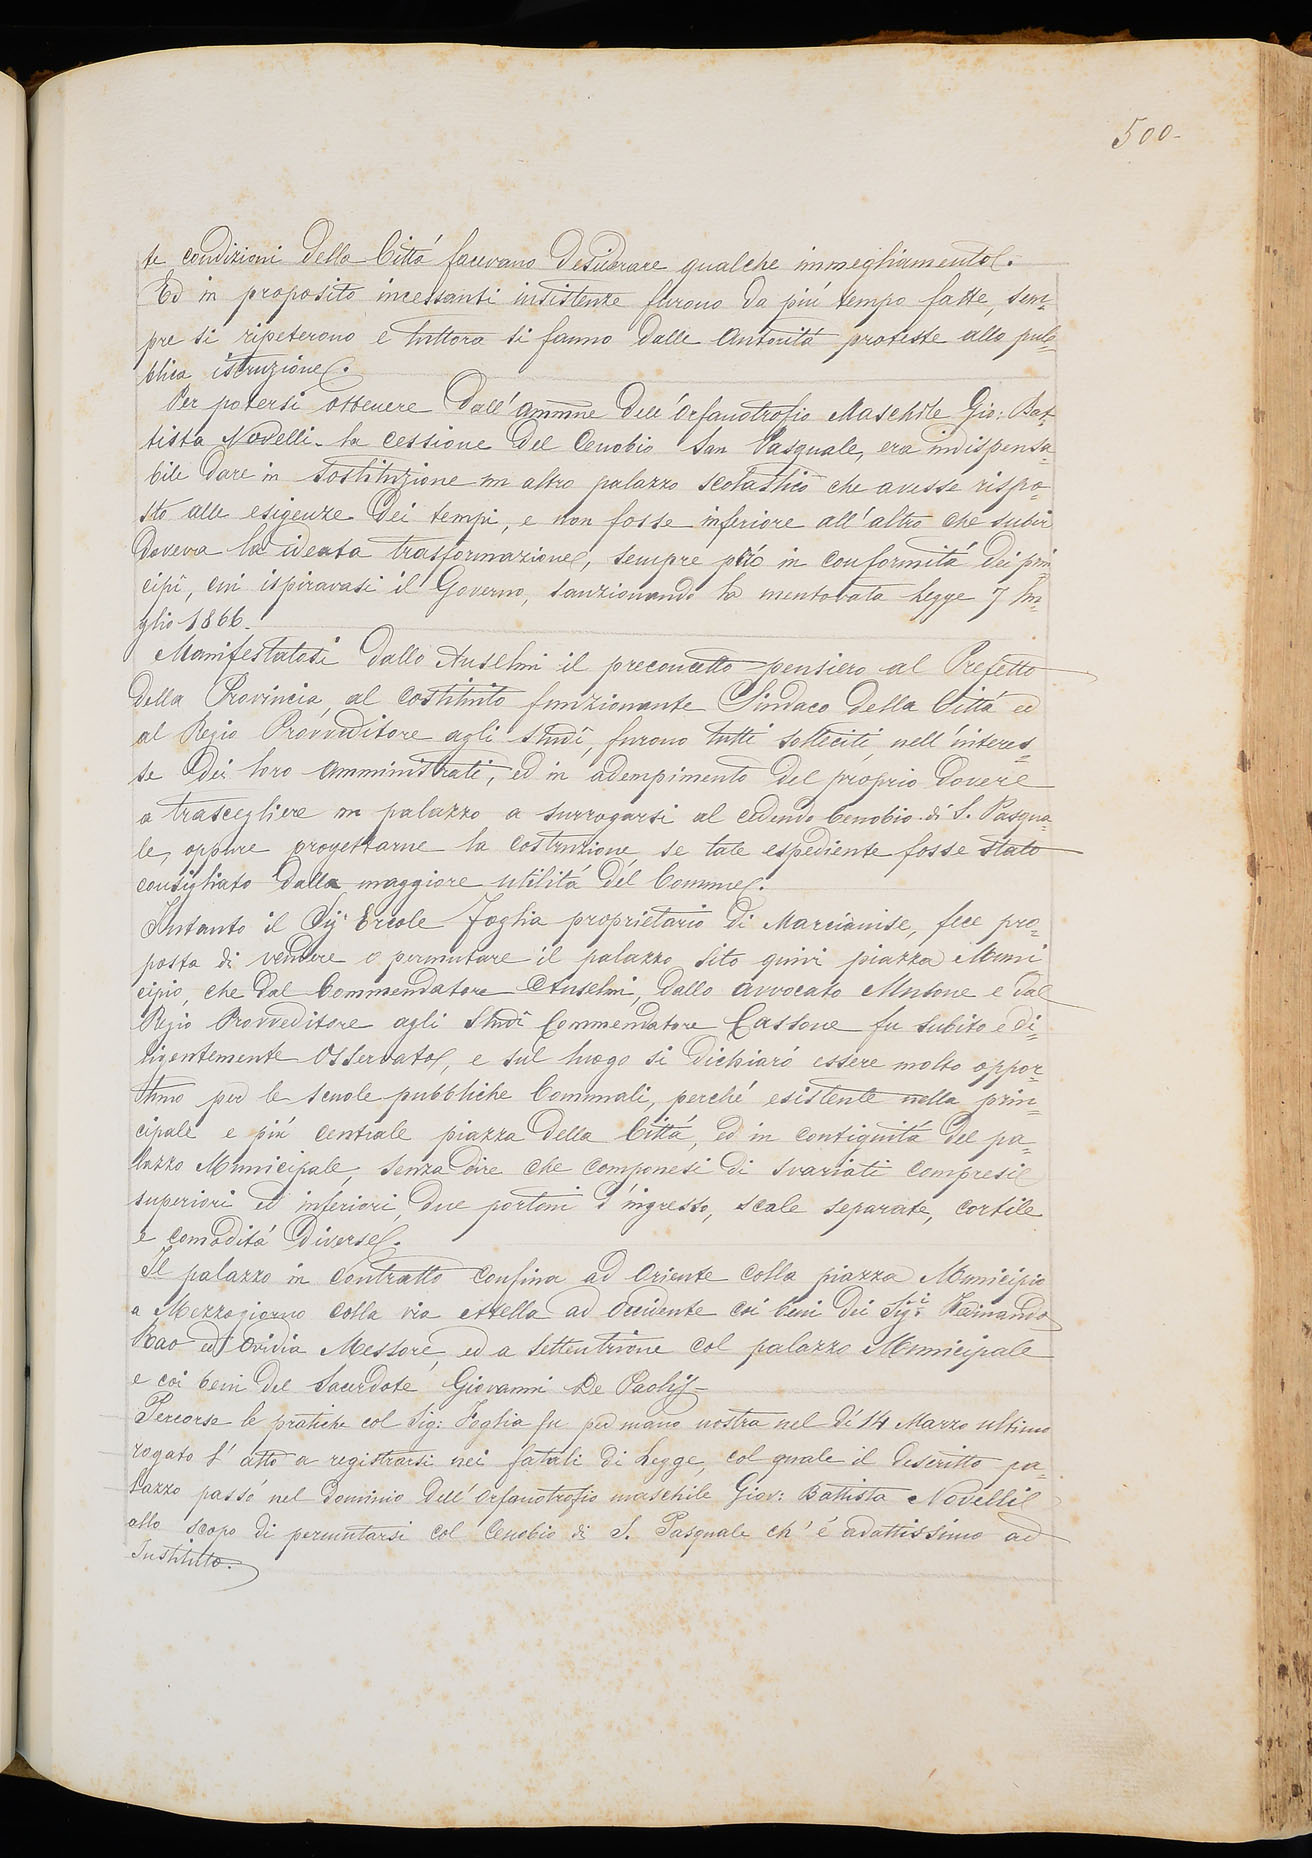 500-
te condizioni della Cittá facevano desiderare qualche immegliamento.
Ed in proposito incessanti insistenze furono da piú tempo fatte, sem=
pre si ripeterono e tuttora si fanno dalle Autoritá proteste alla pub=
blica istruzione.
Per potersi ottenere dall'ammne dell'Orfanotrofio Maschile Gio: Bat=
tista Novelli la cessione del Cenobio San Pasquale, era indispensa=
bile dare in sostituzione un altro palazzo scolastico che avesse rispo=
sto alle esigenze dei tempi, e non fosse inferiore all'altro che subir
doveva la ideata trasformazione, sempre in conformitá dei prin
cipî, cui ispiravasi il Governo, sanzionando la mentovata Legge 7 Lu=
glio 1866.
Manifestatosi dallo Anselmi il preconcetto pensiero al Prefetto
della Provincia, al costituito funzionante Sindaco della Cittá ed
al Regio Provveditore agli studî, furono tutti solleciti, nell'interes=
se dei loro amministrati, ed in adempimento del proprio dovere
a trascegliere un palazzo a surrogarsi al cedendo Cenobio di S. Pasqua=
le, oppure progettarne la costruzione, se tale espediente fosse stato
consigliato dalla maggiore utilitá del Comune.
Intanto il Sig. Ercole Foglia proprietario di Marcianise, fece pro=
posta di vendere o permutare il palazzo sito quivi piazza Muni
cipio, che dal Commendatore Anselmi, dallo avvocato Musone e dal
Regio Provveditore agli Studî Commendatore Cassone fu subito e di=
ligentemente osservato, e sul luogo si dichiaró essere molto oppor=
tuno per le scuole pubbliche Comunali, perché esistente nella prin=
cipale e piú centrale piazza della Cittá, ed in contiguitá del pa=
lazzo Municipale, senza dire che componesi di svariati compresi
superiori ed inferiori, due portoni d'ingresso, scale separate, cortile
e comoditá diverse.
Il palazzo in contratto confina ad Oriente colla piazza Municipio
a Mezzogiorno colla via ad Occidente coi beni dei Sigi. Ferinando
Rao ed Ovidia Messore, ed a Settentrione col palazzo Municipale
e coi beni del Sacerdote Giovanni De Paolis-
Percorse le pratiche col Sig: Foglia fu per mano nostra nel dí 14 Marzo ultimo
rogato l'atto a registrarsi nei fatali di Legge, col quale il descritto pa=
lazzo passó nel dominio dell'Orfanotrofio maschile Giov: Battista Novelli
allo scopo di permutarsi col Cenobio di S. Pasquale ch'é adattissimo ad
Instituto.